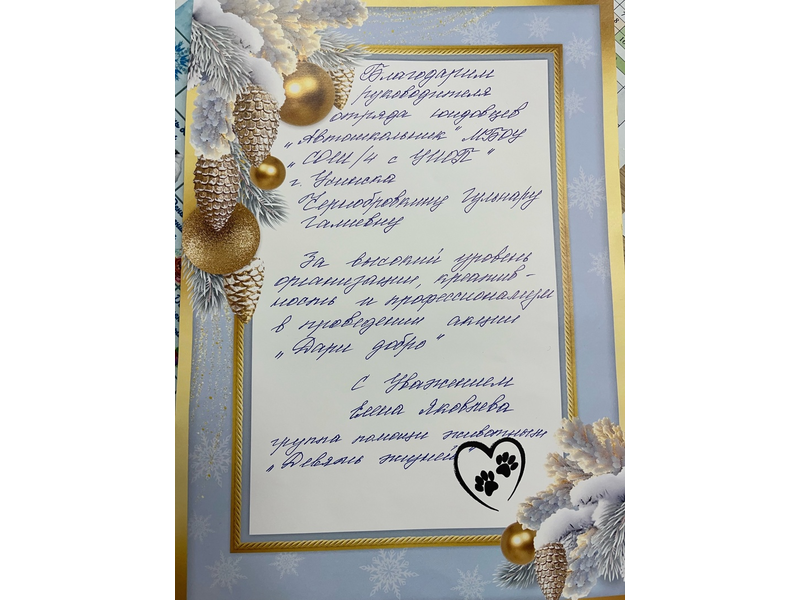 Благодарим
руководителя
отряда юидовцев
„Автошкольник" МБОУ
„СОШ/4 с УИОП"
г. Усинска
Чернобровкину Гульнару
Галиевну
За высокий уровень
организации, креатив-
ность и профессионализм
в проведении акции
„Дари добро"
С Уважением
Елена Яковлева
группа помощи животным
„Девять жизней"